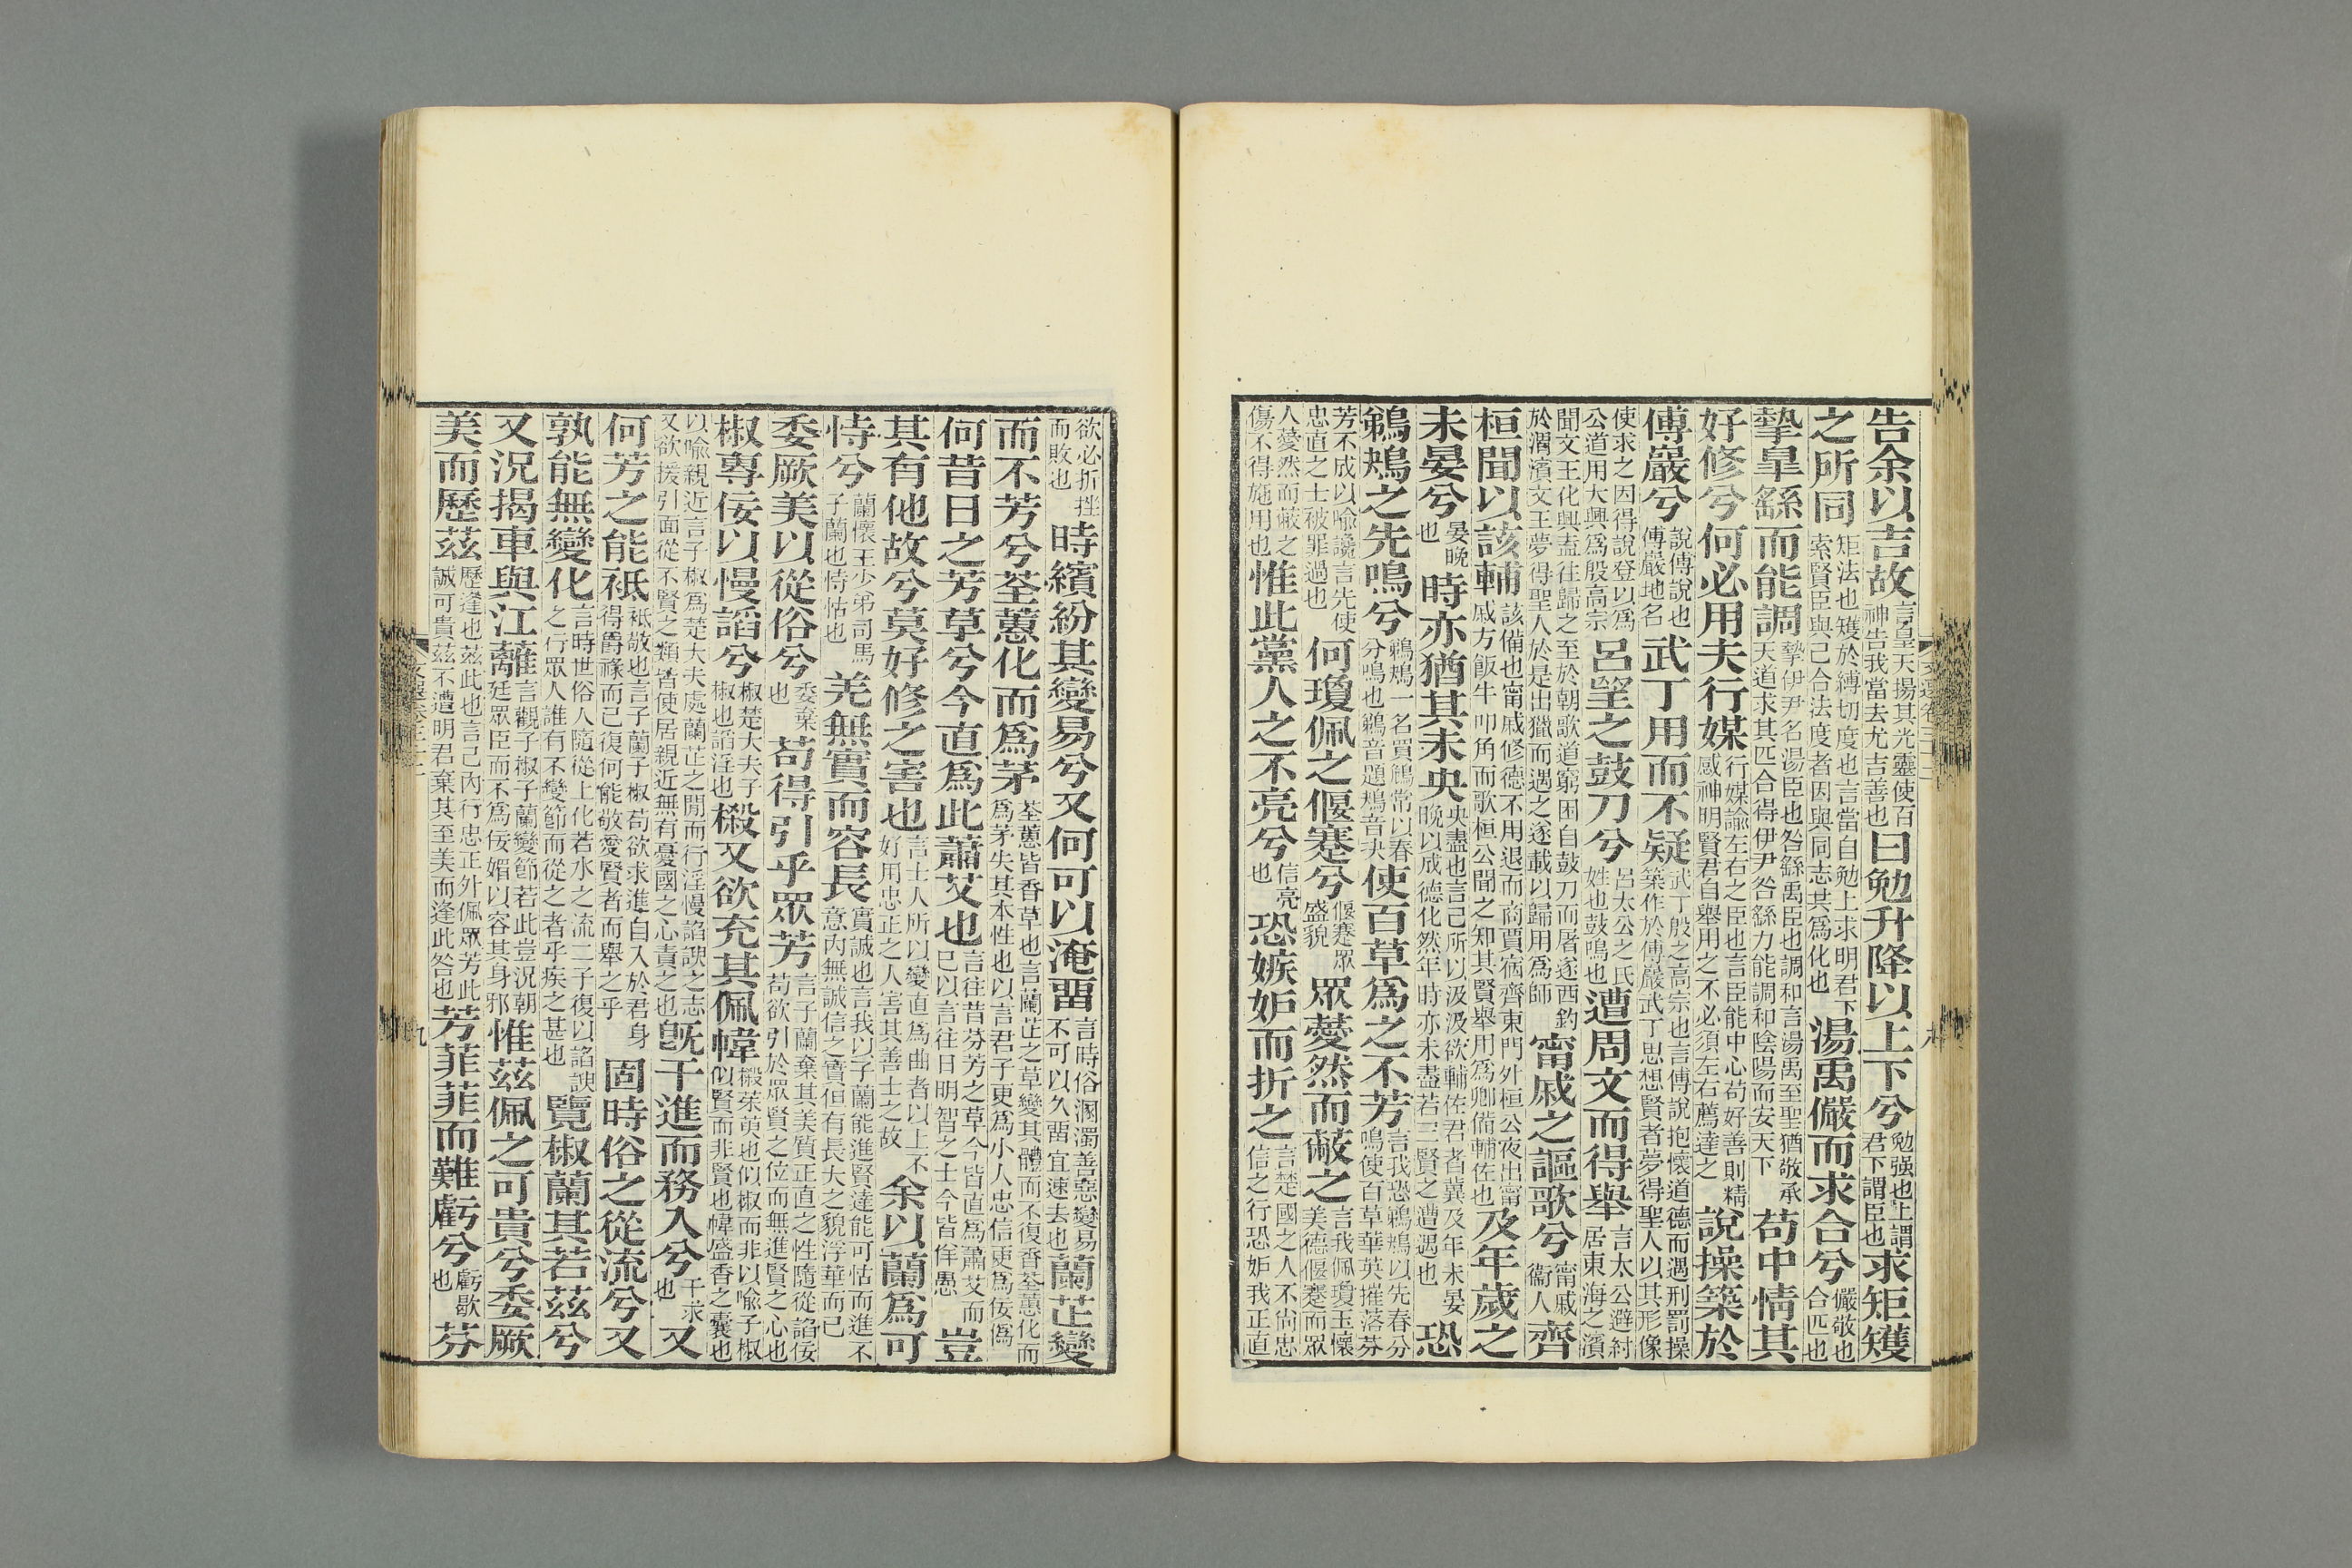 告余以吉故言皇天揚其光靈使百神告我當去尤吉善也曰勉升降以上下兮勉强也上謂君下謂臣也求矩矱
之所同矩法也矱於縛切度也言當自勉上求明君下索賢臣與己合法度者因與同志共爲化也湯禹儼而求合兮儼敬也合匹也
摯皐繇而能調摯伊尹名湯臣也咎繇禹臣也調和言湯禹至聖猶敬承天道求其匹合得伊尹咎繇力能調和陰陽而安天下苟中情其
好修兮何必用夫行媒行媒諭左右之臣也言臣能中心苟好善則精感神明賢君自舉用之不必須左右薦達之說操築於
傅巖兮說傅說也傅巖地名武丁用而不疑武丁殷之高宗也言傅說抱懷道德而遇刑罰操築作於傅巖武丁思想賢者夢得聖人以其形像
使求之因得說登以爲公道用大興爲殷高宗呂望之鼓刀兮呂太公之氏姓也鼓鳴也遭周文而得舉言太公避紂居東海之濱
聞文王化興盍往歸之至於朝歌道窮困自鼓刀而屠遂西釣於渭濱文王夢得聖人於是出獵而遇之遂載以歸用爲師甯戚之謳歌兮甯戚衞人齊
桓聞以該輔該備也甯戚修德不用退而商賈宿齊東門外桓公夜出甯戚方飯牛叩角而歌桓公聞之知其賢舉用爲卿備輔佐也及年歲之
未晏兮晏晚也時亦猶其未央央盡也言己所以汲汲欲輔佐君者冀及年未晏晚以成德化然年時亦未盡若三賢之遭遇也恐
鵜鴂之先鳴兮鵜鴂一名買鵤常以春分鳴也鵜音題鴂音夬使百草爲之不芳言我恐鵜鴂以先春分鳴使百草華英摧落芬
芳不成以喻讒言先使忠直之士被罪過也何瓊佩之偃蹇兮偃蹇眾盛貌眾薆然而蔽之言我佩瓊玉懷美德偃蹇而眾
人薆然而蔽之傷不得施用也惟此黨人之不亮兮信亮也恐嫉妒而折之言楚國之人不尚忠信之行恐妒我正直
欲必折挫而敗也時繽紛其變易兮又何可以淹畱言時俗溷濁善惡變易不可以久畱宜速去也蘭芷變
而不芳兮荃蕙化而爲茅荃蕙皆香草也言蘭芷之草變其體而不復香荃蕙化而爲茅失其本性也以言君子更爲小人忠信更爲佞僞
何昔日之芳草兮今直爲此蕭艾也言往昔芬芳之草今皆直爲蕭艾而已以言往日明智之士今皆佯愚豈
其有他故兮莫好修之害也言士人所以變直爲曲者以上不好用忠正之人害其善士之故余以蘭爲可
恃兮蘭懷王少弟司馬子蘭也恃怙也羌無實而容長實誠也言我以子蘭能進賢達能可怙而進不意內無誠信之實但有長大之貌浮華而已
委厥美以從俗兮委棄也苟得引乎眾芳言子蘭棄其美質正直之性隨從諂佞苟欲引於眾賢之位而無進賢之心也
椒專佞以慢謟兮椒楚大夫子椒也謟淫也樧又欲充其佩幃樧茱萸也似椒而非以喻子椒似賢而非賢也幃盛香之囊也
以喻親近言子椒爲楚大夫處蘭芷之閒而行淫慢諂諛之志又欲援引面從不賢之類皆使居親近無有憂國之心責之也旣干進而務入兮干求也又
何芳之能祇祇敬也言子蘭子椒苟欲求進自入於君身得爵祿而已復何能敬愛賢者而舉之乎固時俗之從流兮又
孰能無變化言時世俗人隨從上化若水之流二子復以諂諛之行眾人誰有不變節而從之者乎疾之甚也覽椒蘭其若茲兮
又況揭車與江蘺言觀子椒子蘭變節若此豈況朝廷眾臣而不爲佞媚以容其身邪惟茲佩之可貴兮委厥
美而歷茲歷逢也茲此也言己內行忠正外佩眾芳此誠可貴茲不遭明君棄其至美而逢此咎也芳菲菲而難虧兮虧歇也芬